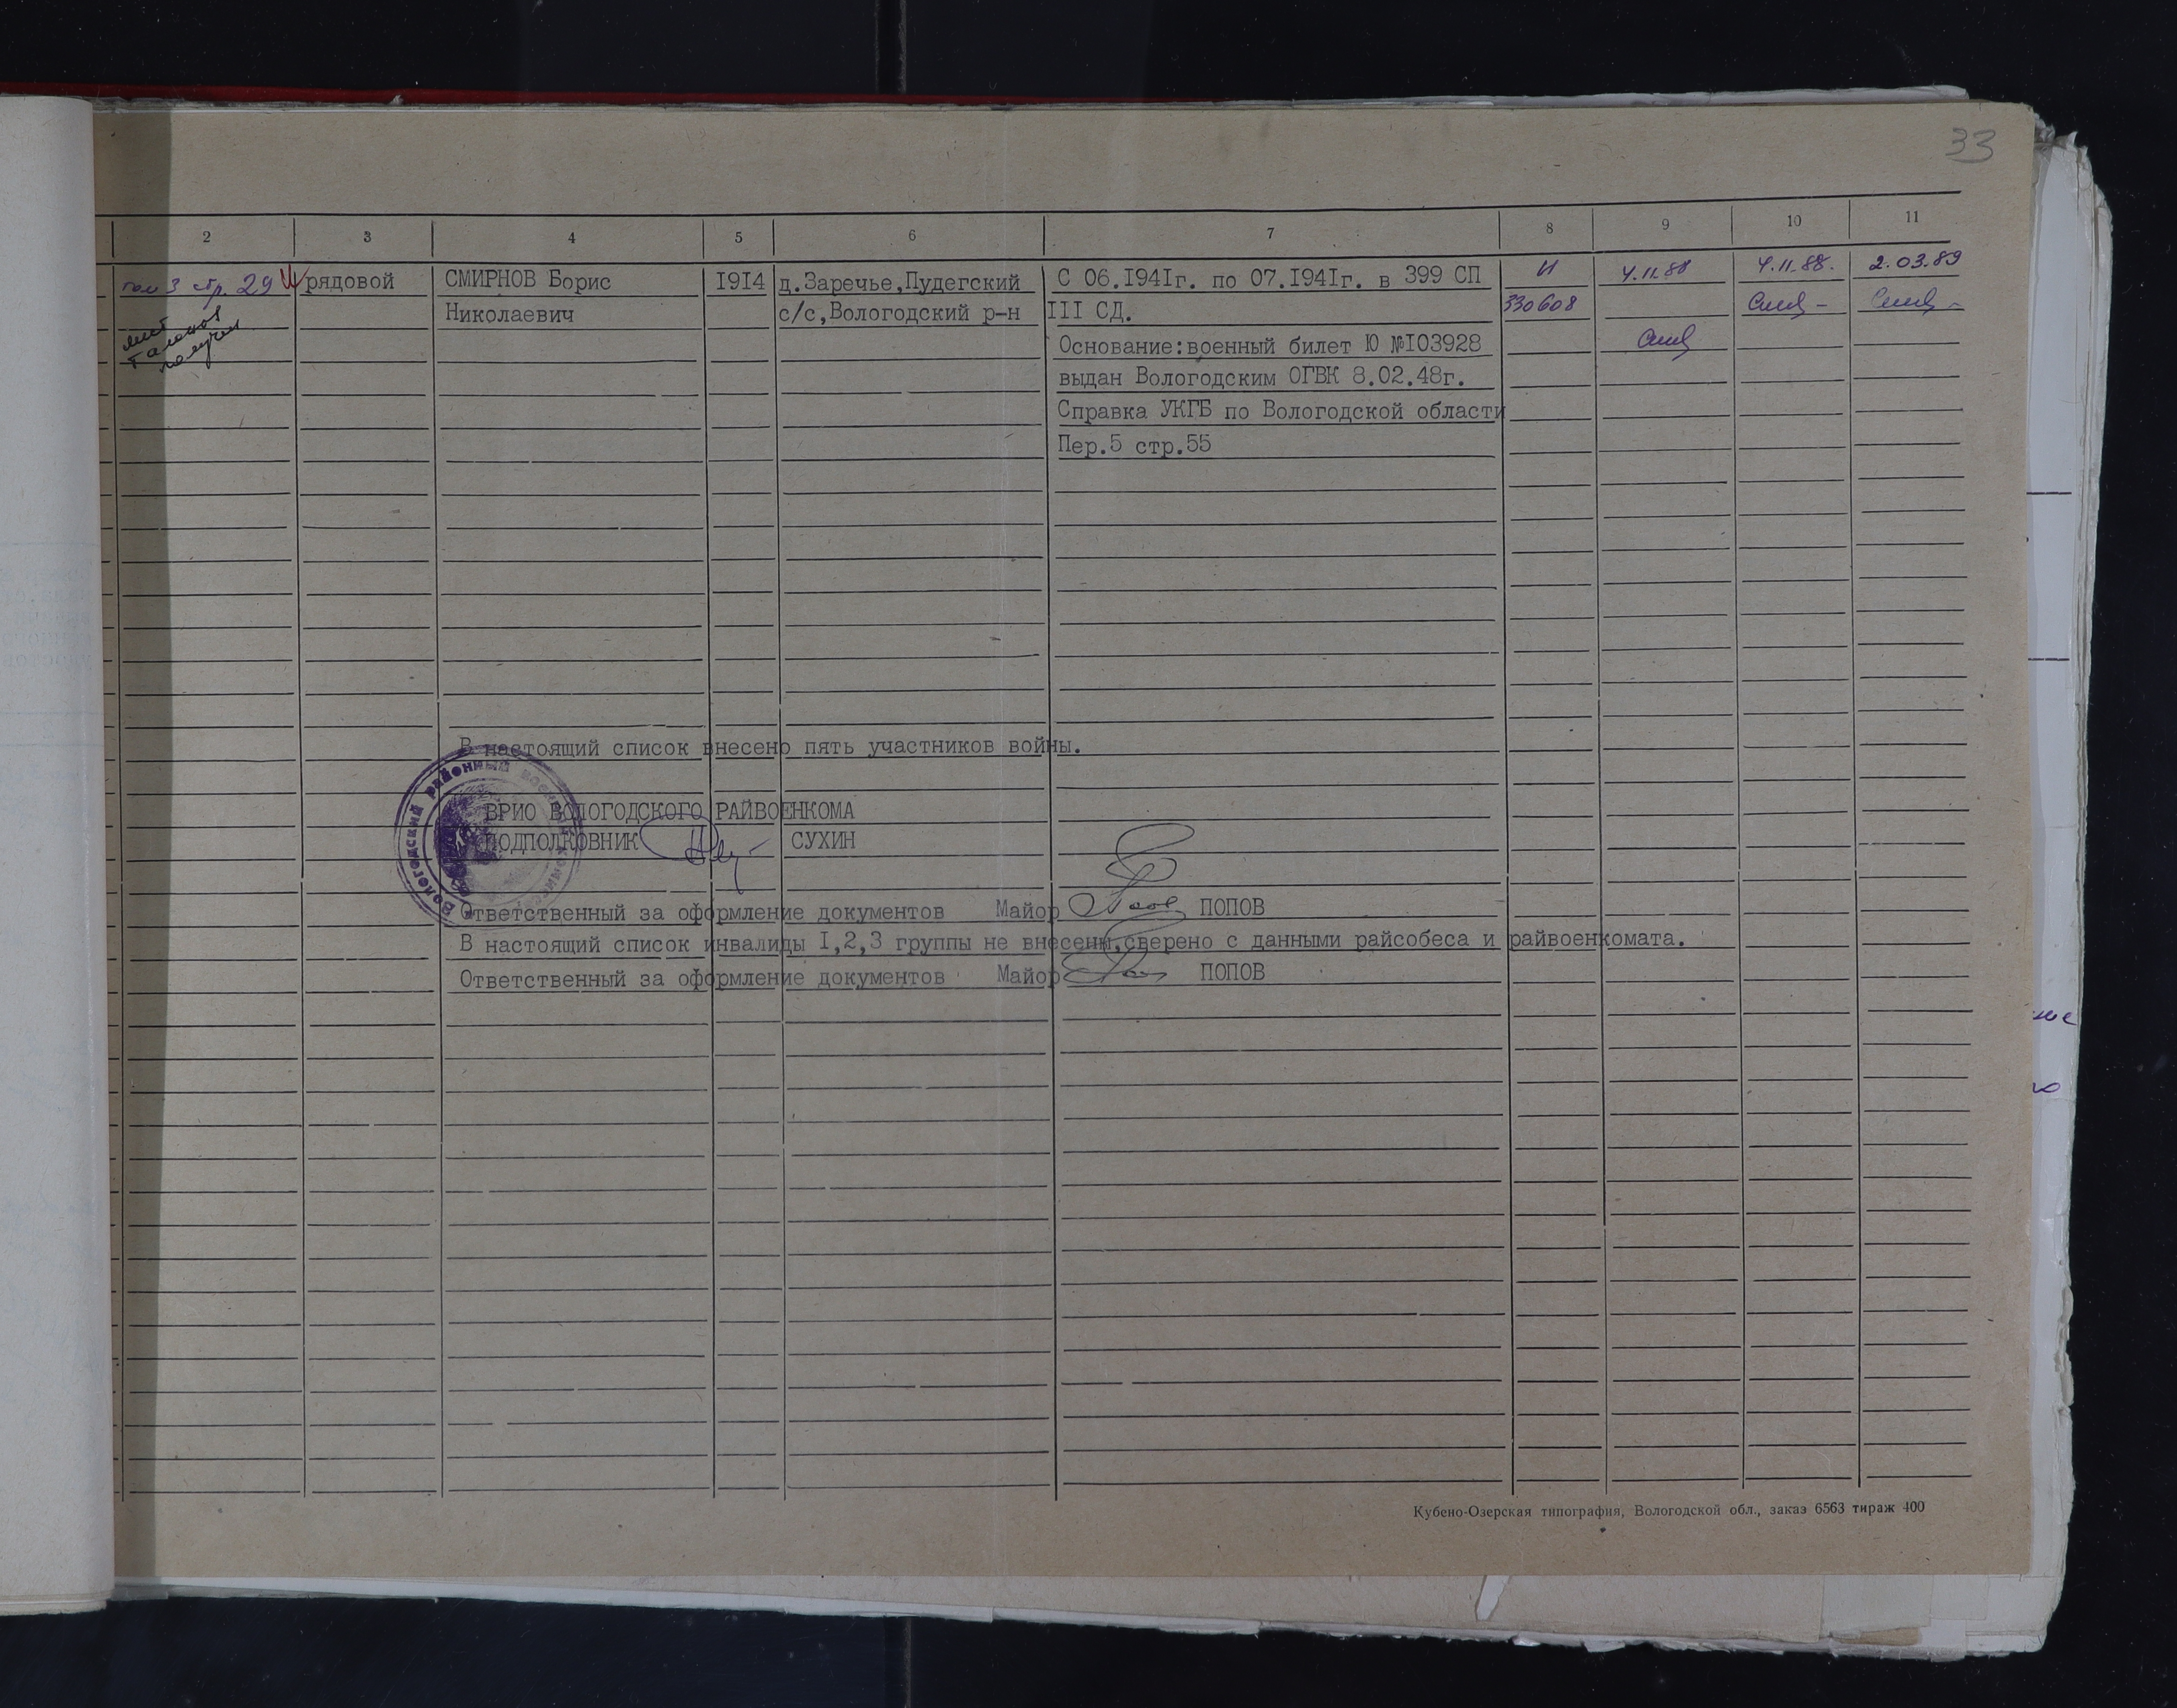 33
2 3 4 5 6 7 8 9 10 11
том 3 стр. 29 рядовой СМИРНОВ Борис 1914 д.Заречье,Пудегский С 06.1941г. по 07.1941г. в 399 СП И 4.11.88 4.11.88. 2.03.89
Николаевич с/с,Вологодский р-н III СД. 330608
лист
талонов
получил
Основание:военный билет Ю №103928
выдан Вологодским ОГВК 8.02.48г.
Справка УКГБ по Вологодской области
Пер.5 стр.55
В настоящий список внесено пять участников войны.
ВРИО ВОЛОГОДСКОГО РАЙВОЕНКОМА
ПОДПОЛКОВНИК СУХИН
Вологодский районный военный
Ответственный за оформление документов Майор ПОПОВ
В настоящий список инвалиды 1,2,3 группы не внесены,сверено с данными райсобеса и райвоенкомата.
Ответственный за оформление документов Майор ПОПОВ
Кубено-Озерская типография, Вологодской обл., заказ 6563 тираж 400